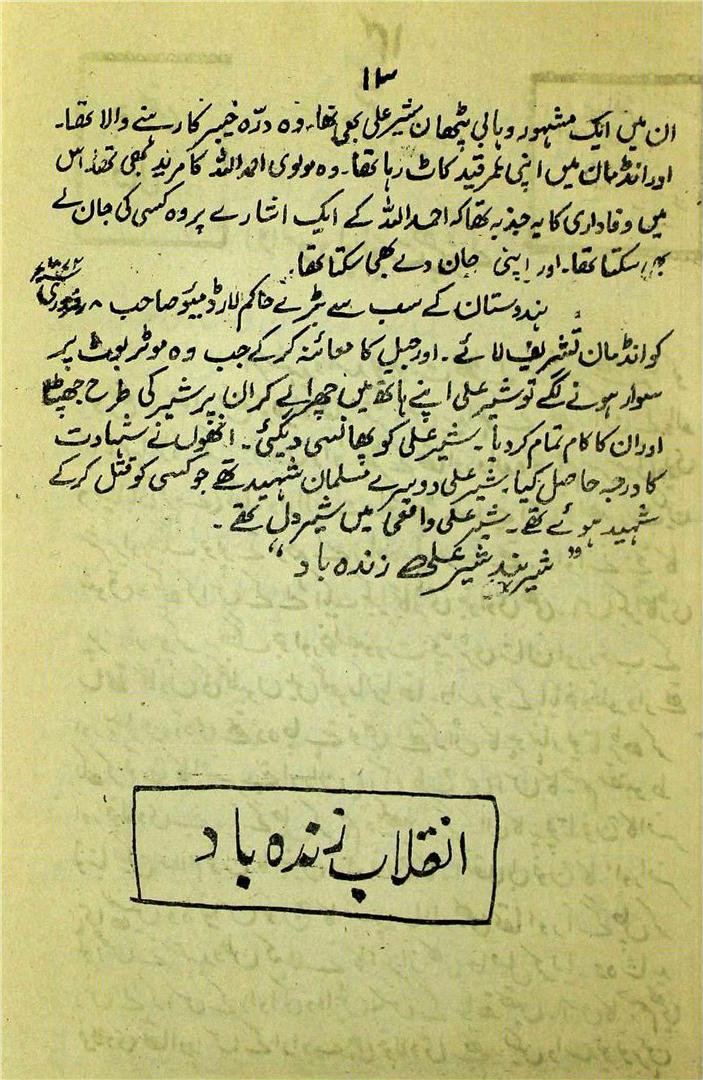 ۱۳
ان میں ایک مشہور وہابی پٹھان شیر علی بھی تھا۔ وہ درّہ خیبر کا رہنے والا تھا۔
اور انڈمان میں اپنی عمر قید کاٹ رہا تھا۔ وہ مولوی احمد اللہ کا مرید بھی تھا۔ اس
میں وفاداری کا یہ جذبہ تھا کہ احمد اللہ کے ایک اشارے پر وہ کسی کی جان لے
بھی سکتا تھا۔ اور اپنی جان دے بھی سکتا تھا۔
ہندوستان کے سب سے بڑے حاکم لارڈ میئو صاحب ۸ فروری ۱۸۷۲ء
کو انڈمان تشریف لائے۔ اور جیل کا معائنہ کر کے جب وہ موٹر بوٹ پر
سوار ہونے لگے تو شیر علی اپنے ہاتھ میں چھرا لے کر ان پر شیر کی طرح جھپٹا
اور ان کا کام تمام کر دیا۔ شیر علی کو پھانسی دیگئی۔ انھوں نے شہادت
کا درجہ حاصل کیا۔ شیر علی دوسرے مسلمان شہید تھے جو کسی کو قتل کر کے
شہید ہوئے تھے۔ شیر علی واقعی میں شیر دل تھے۔
"شیر ہند شیر علی زندہ باد"
انقلاب زندہ باد